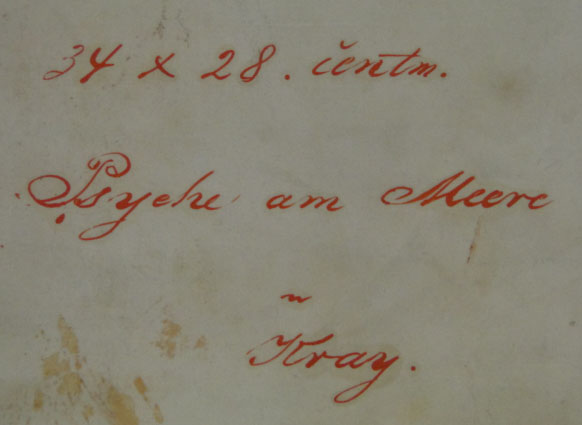 34 x 28. čentm.
Psyche am Meere
Kray.